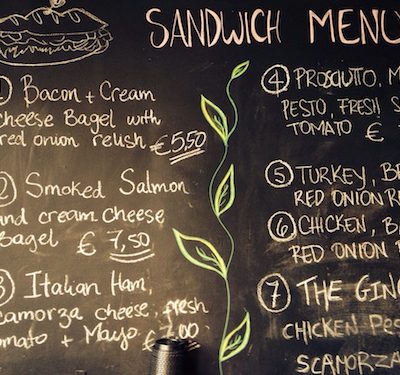 SANDWICH MENU
Bacon + Cream
cheese Bagel with
red onion relish €5,50
2 Smoked Salmon
and cream cheese
Bagel € 7,50
3 Italian Ham,
scamorza cheese, fresh
tomato + Mayo €7,00
4 PROSCIUTTO, M
PESTO, FRESH S
TOMATO €
5 TURKEY, B
RED ONION R
6 CHICKEN, BA
RED ONION
7 THE GIN
CHICKEN PES
SCAMORZA